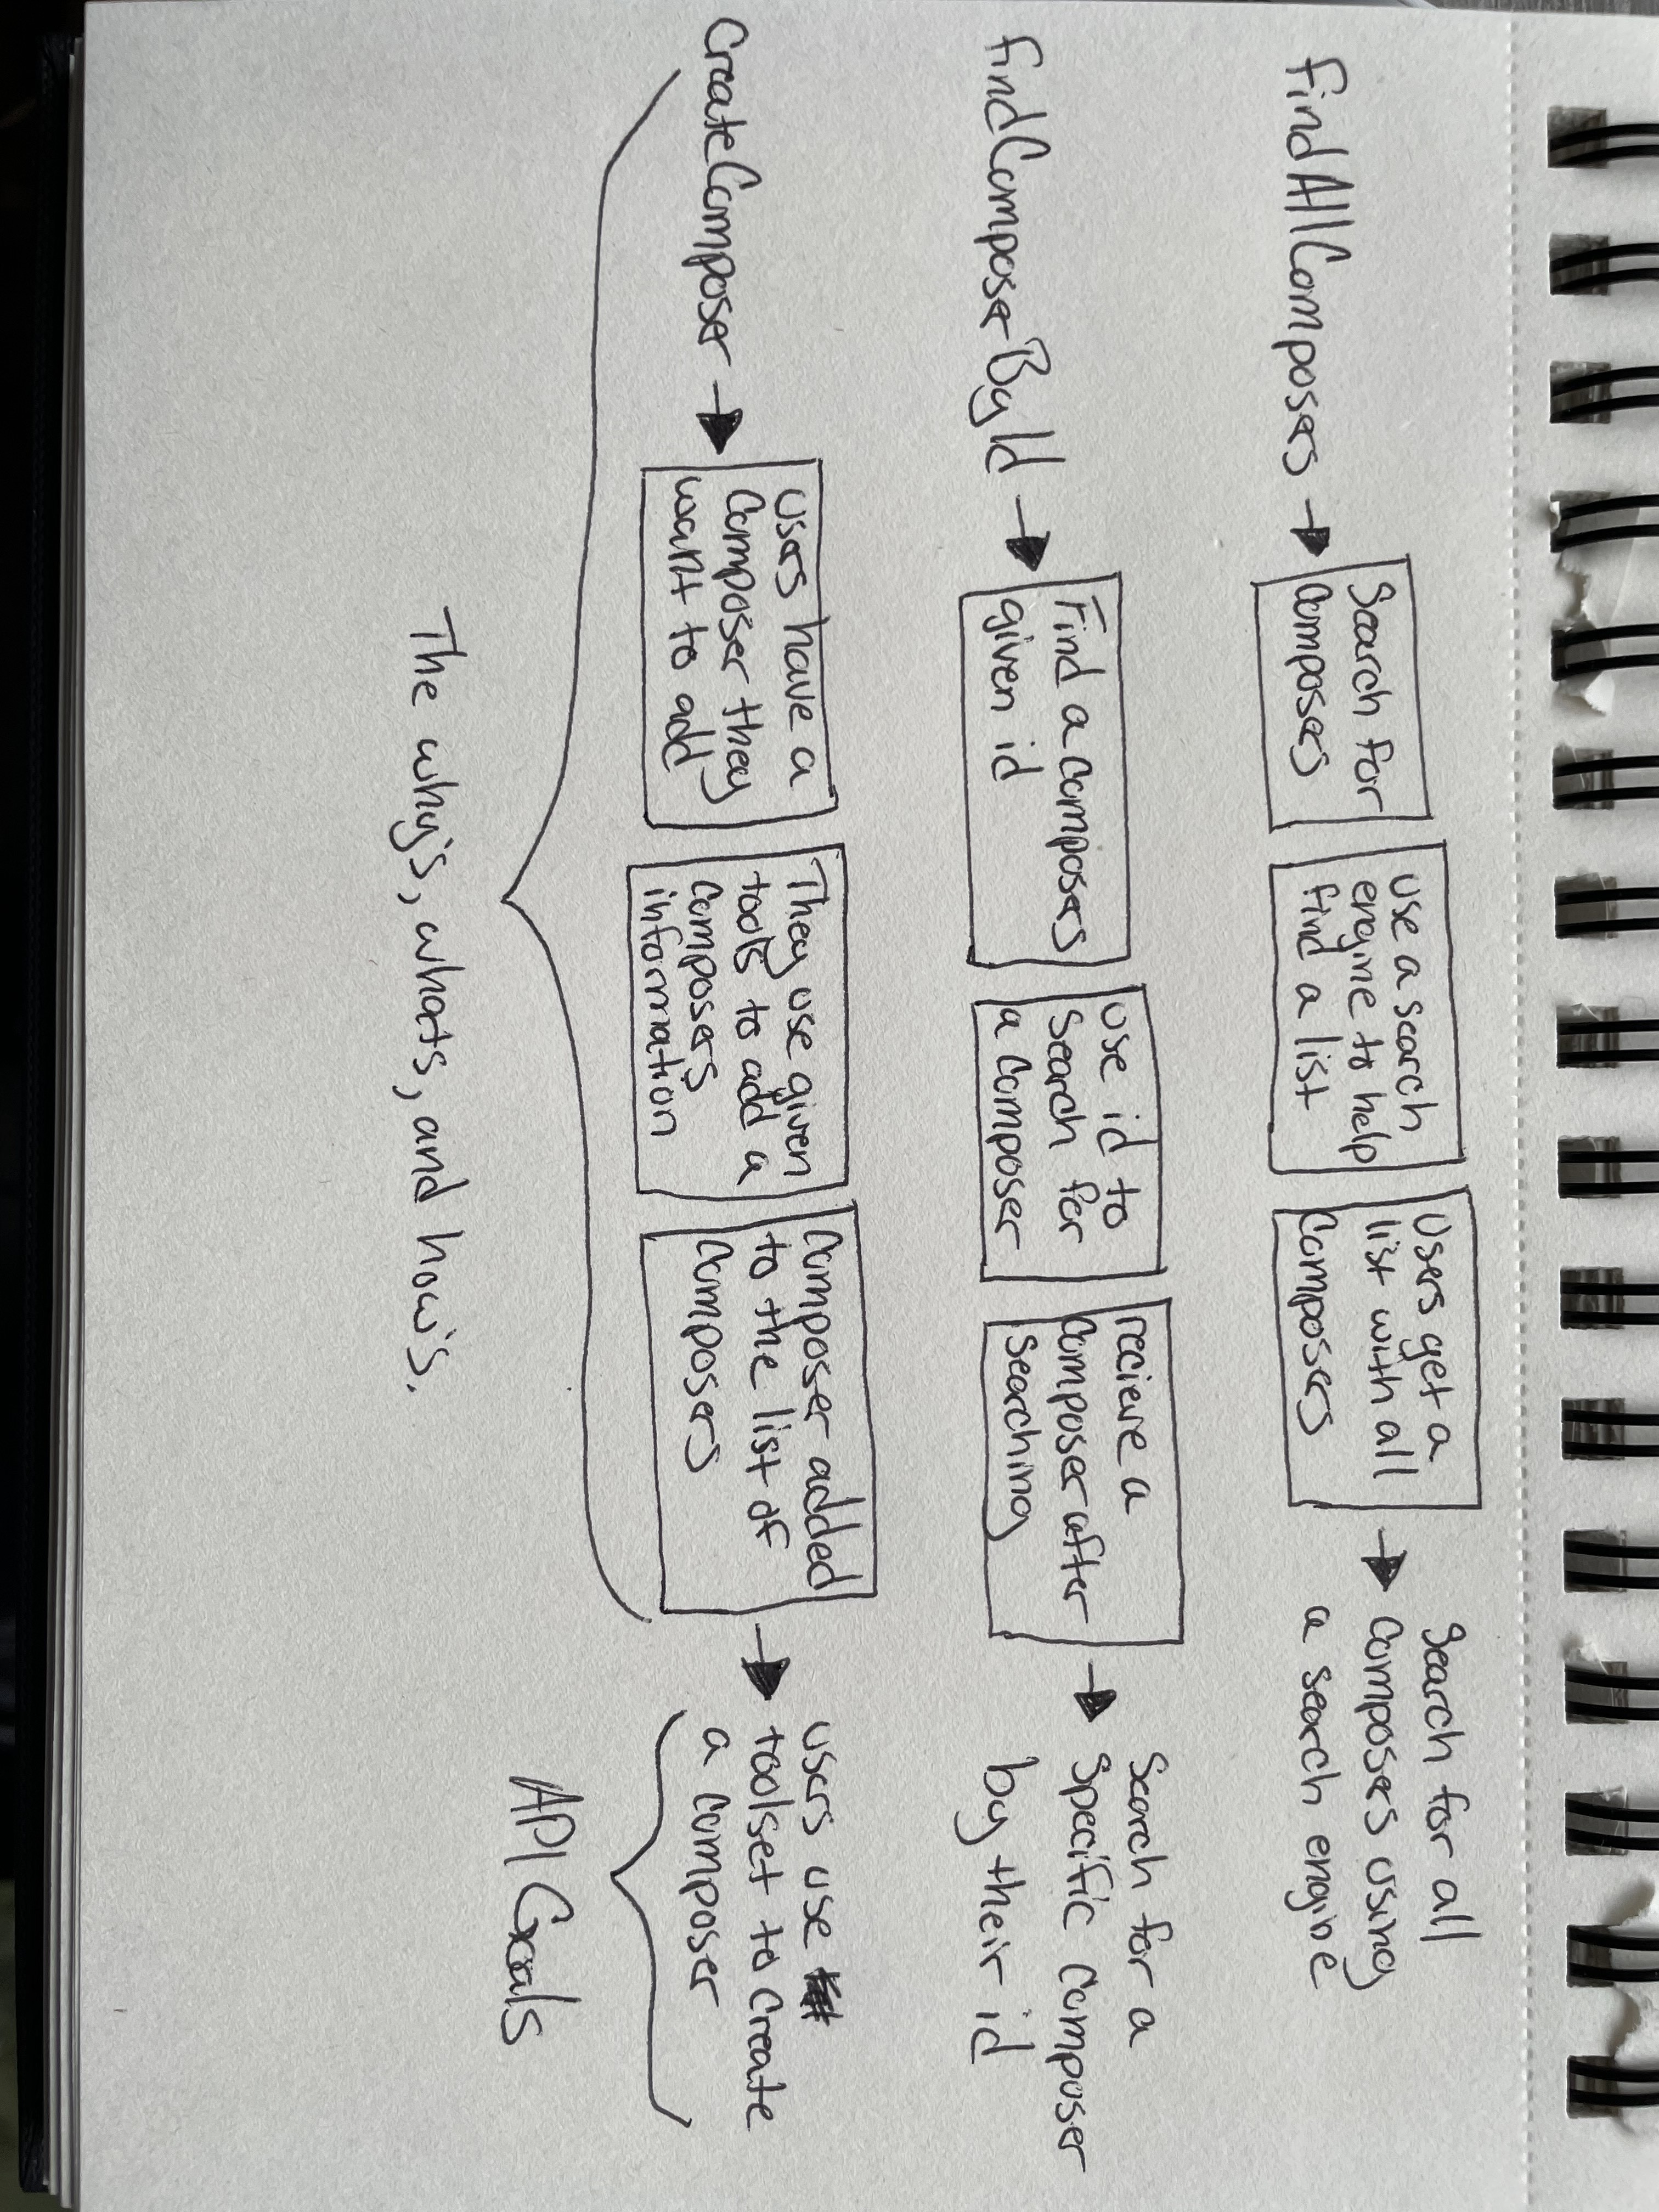 findAllComposers
Search for
composers
use a search
engine to help
find a list
Users get a
list with all
composers
Search for all
composers using
a search engine
findComposerById
Find a composers
given id
use id to
search for
a composer
recieve a
composer after
searching
Search for a
specific composer
by their id
CreateComposer
users have a
composer they
want to add
They use given
tools to add a
composers
information
composer added
to the list of
composers
users use
toolset to create
a composer
The why's, whats, and how's.
API Goals